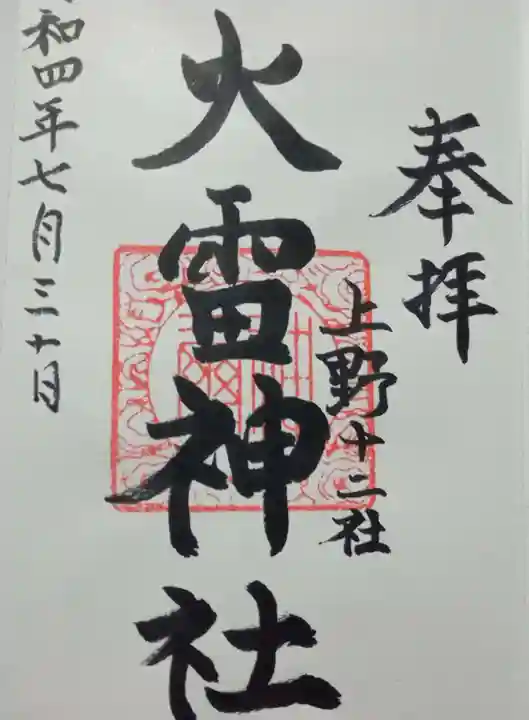 奉拝
上野十二社
火雷神社
和四年七月三十日